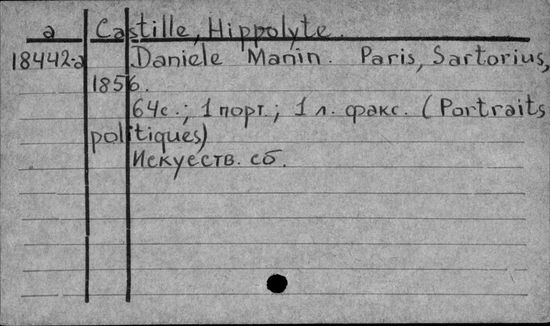 a Castille, Hippolyte.
18442-a Daniele Manin. Paris, Sartorius,
1856.
64с.; 1 порт.; 1 л. факс. (Portraits
politiques)
Искуеств. сб.